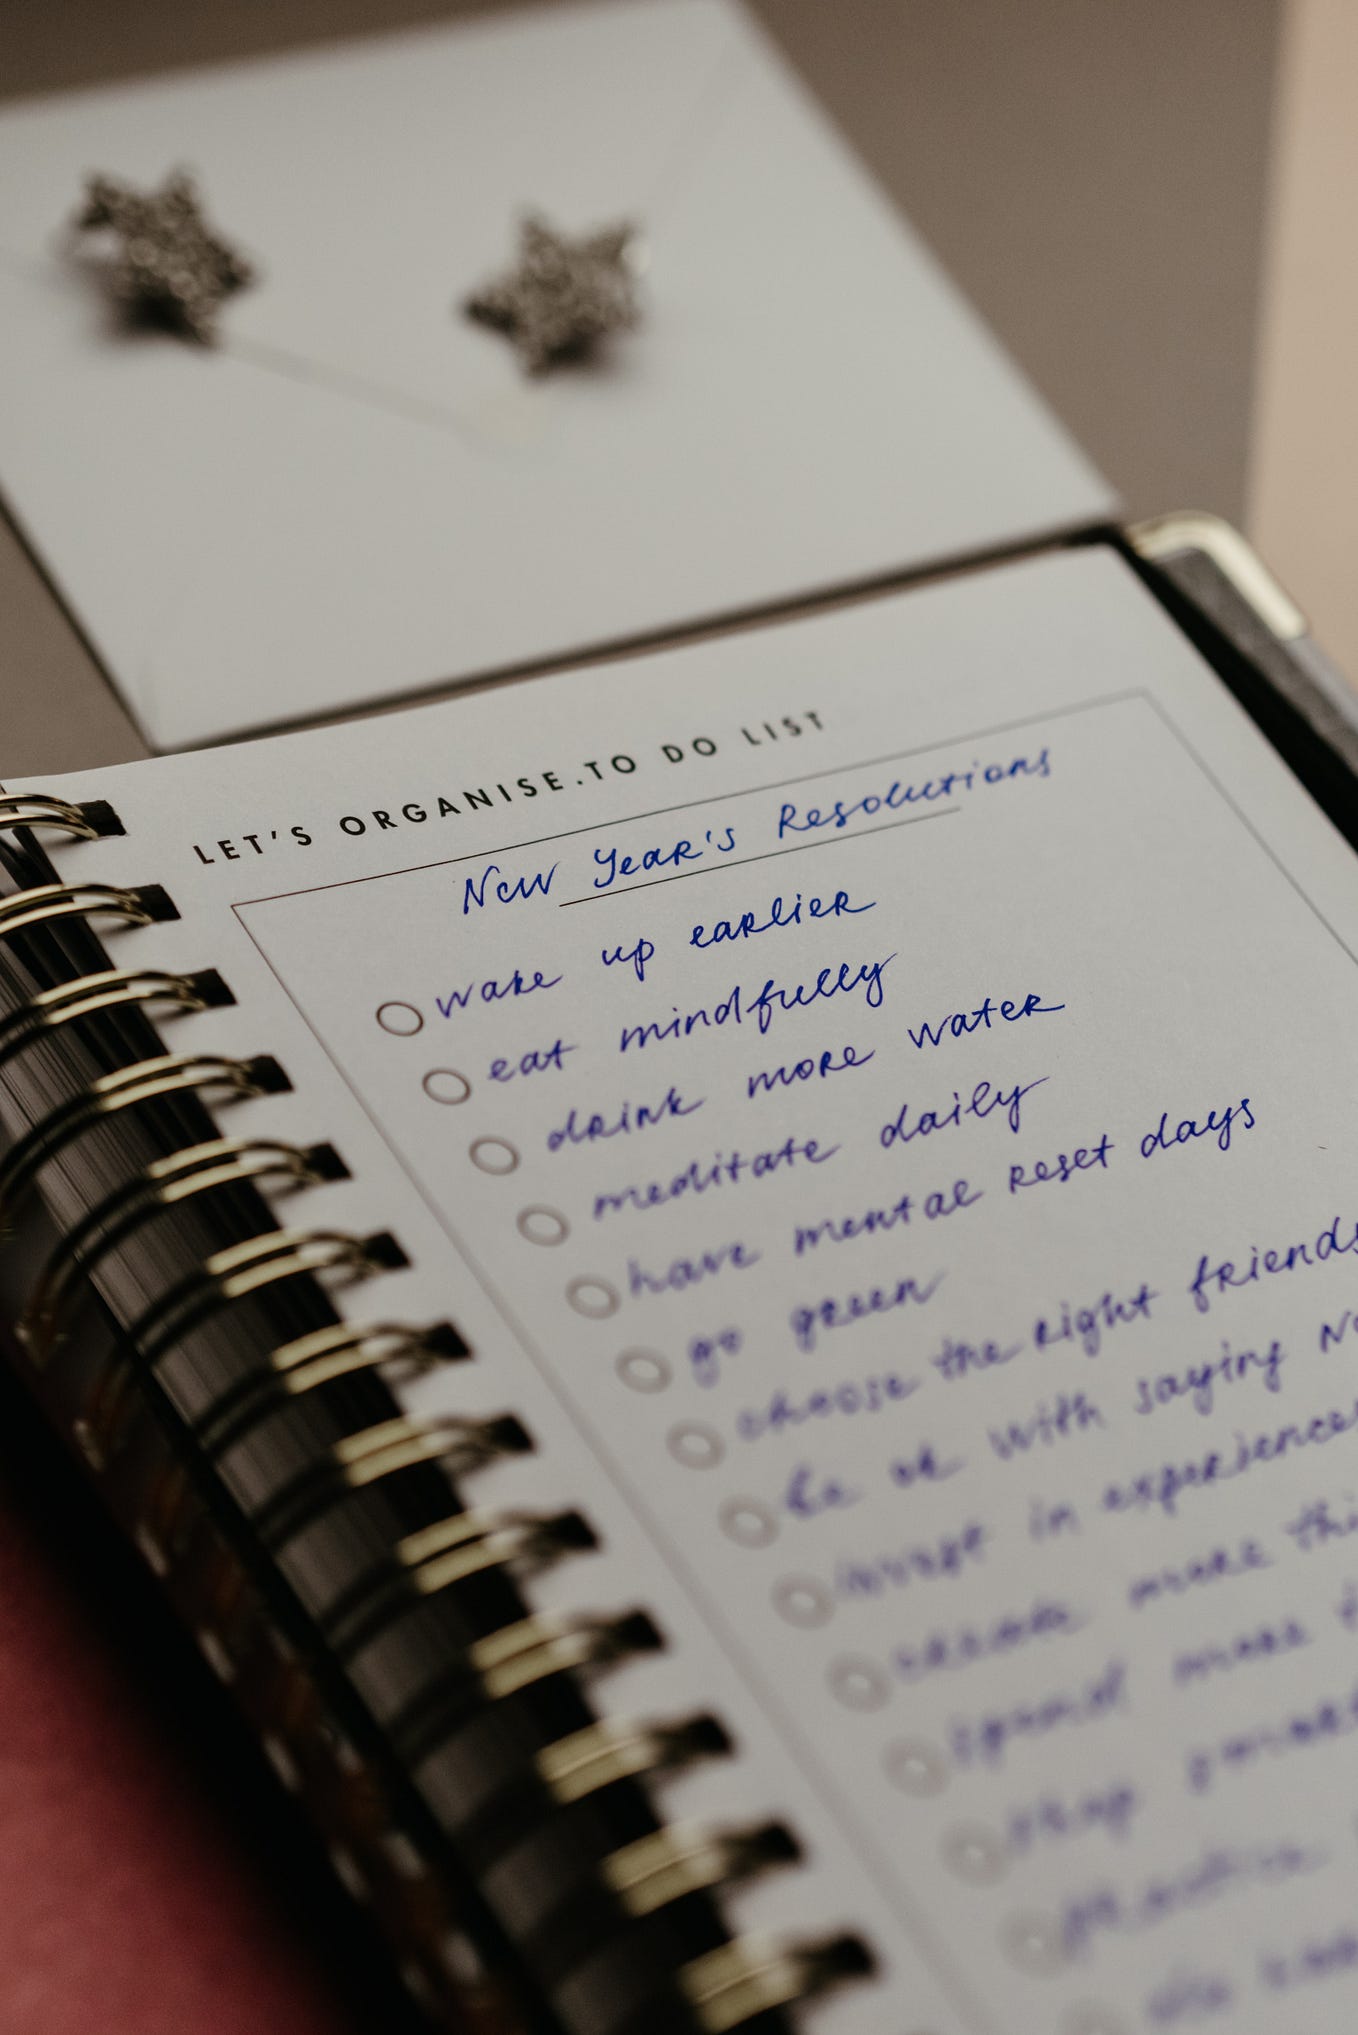 LET'S ORGANISE.TO DO LIST
New Year's Resolutions
wake up earlier
eat mindfully
drink more water
meditate daily
have mental reset days
go green
choose the right friends
be ok with saying
invest in experiences
create more
spend more
stop
practice